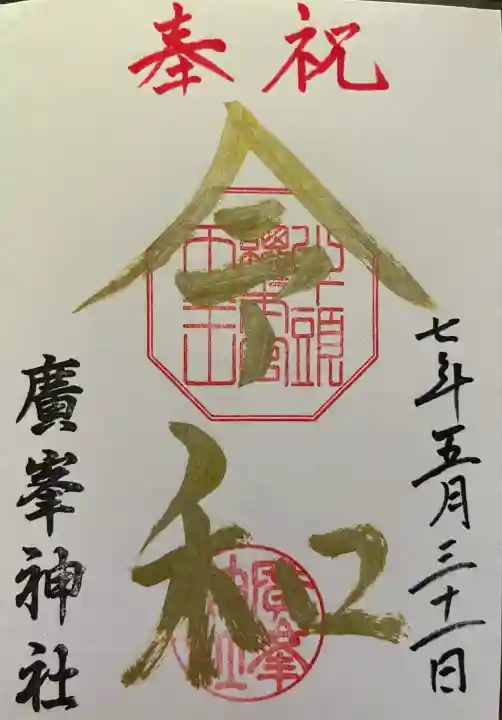 奉祝
令和
七年五月三十一日
牛頭
總本宮
天王
廣峯
神社
廣峯神社